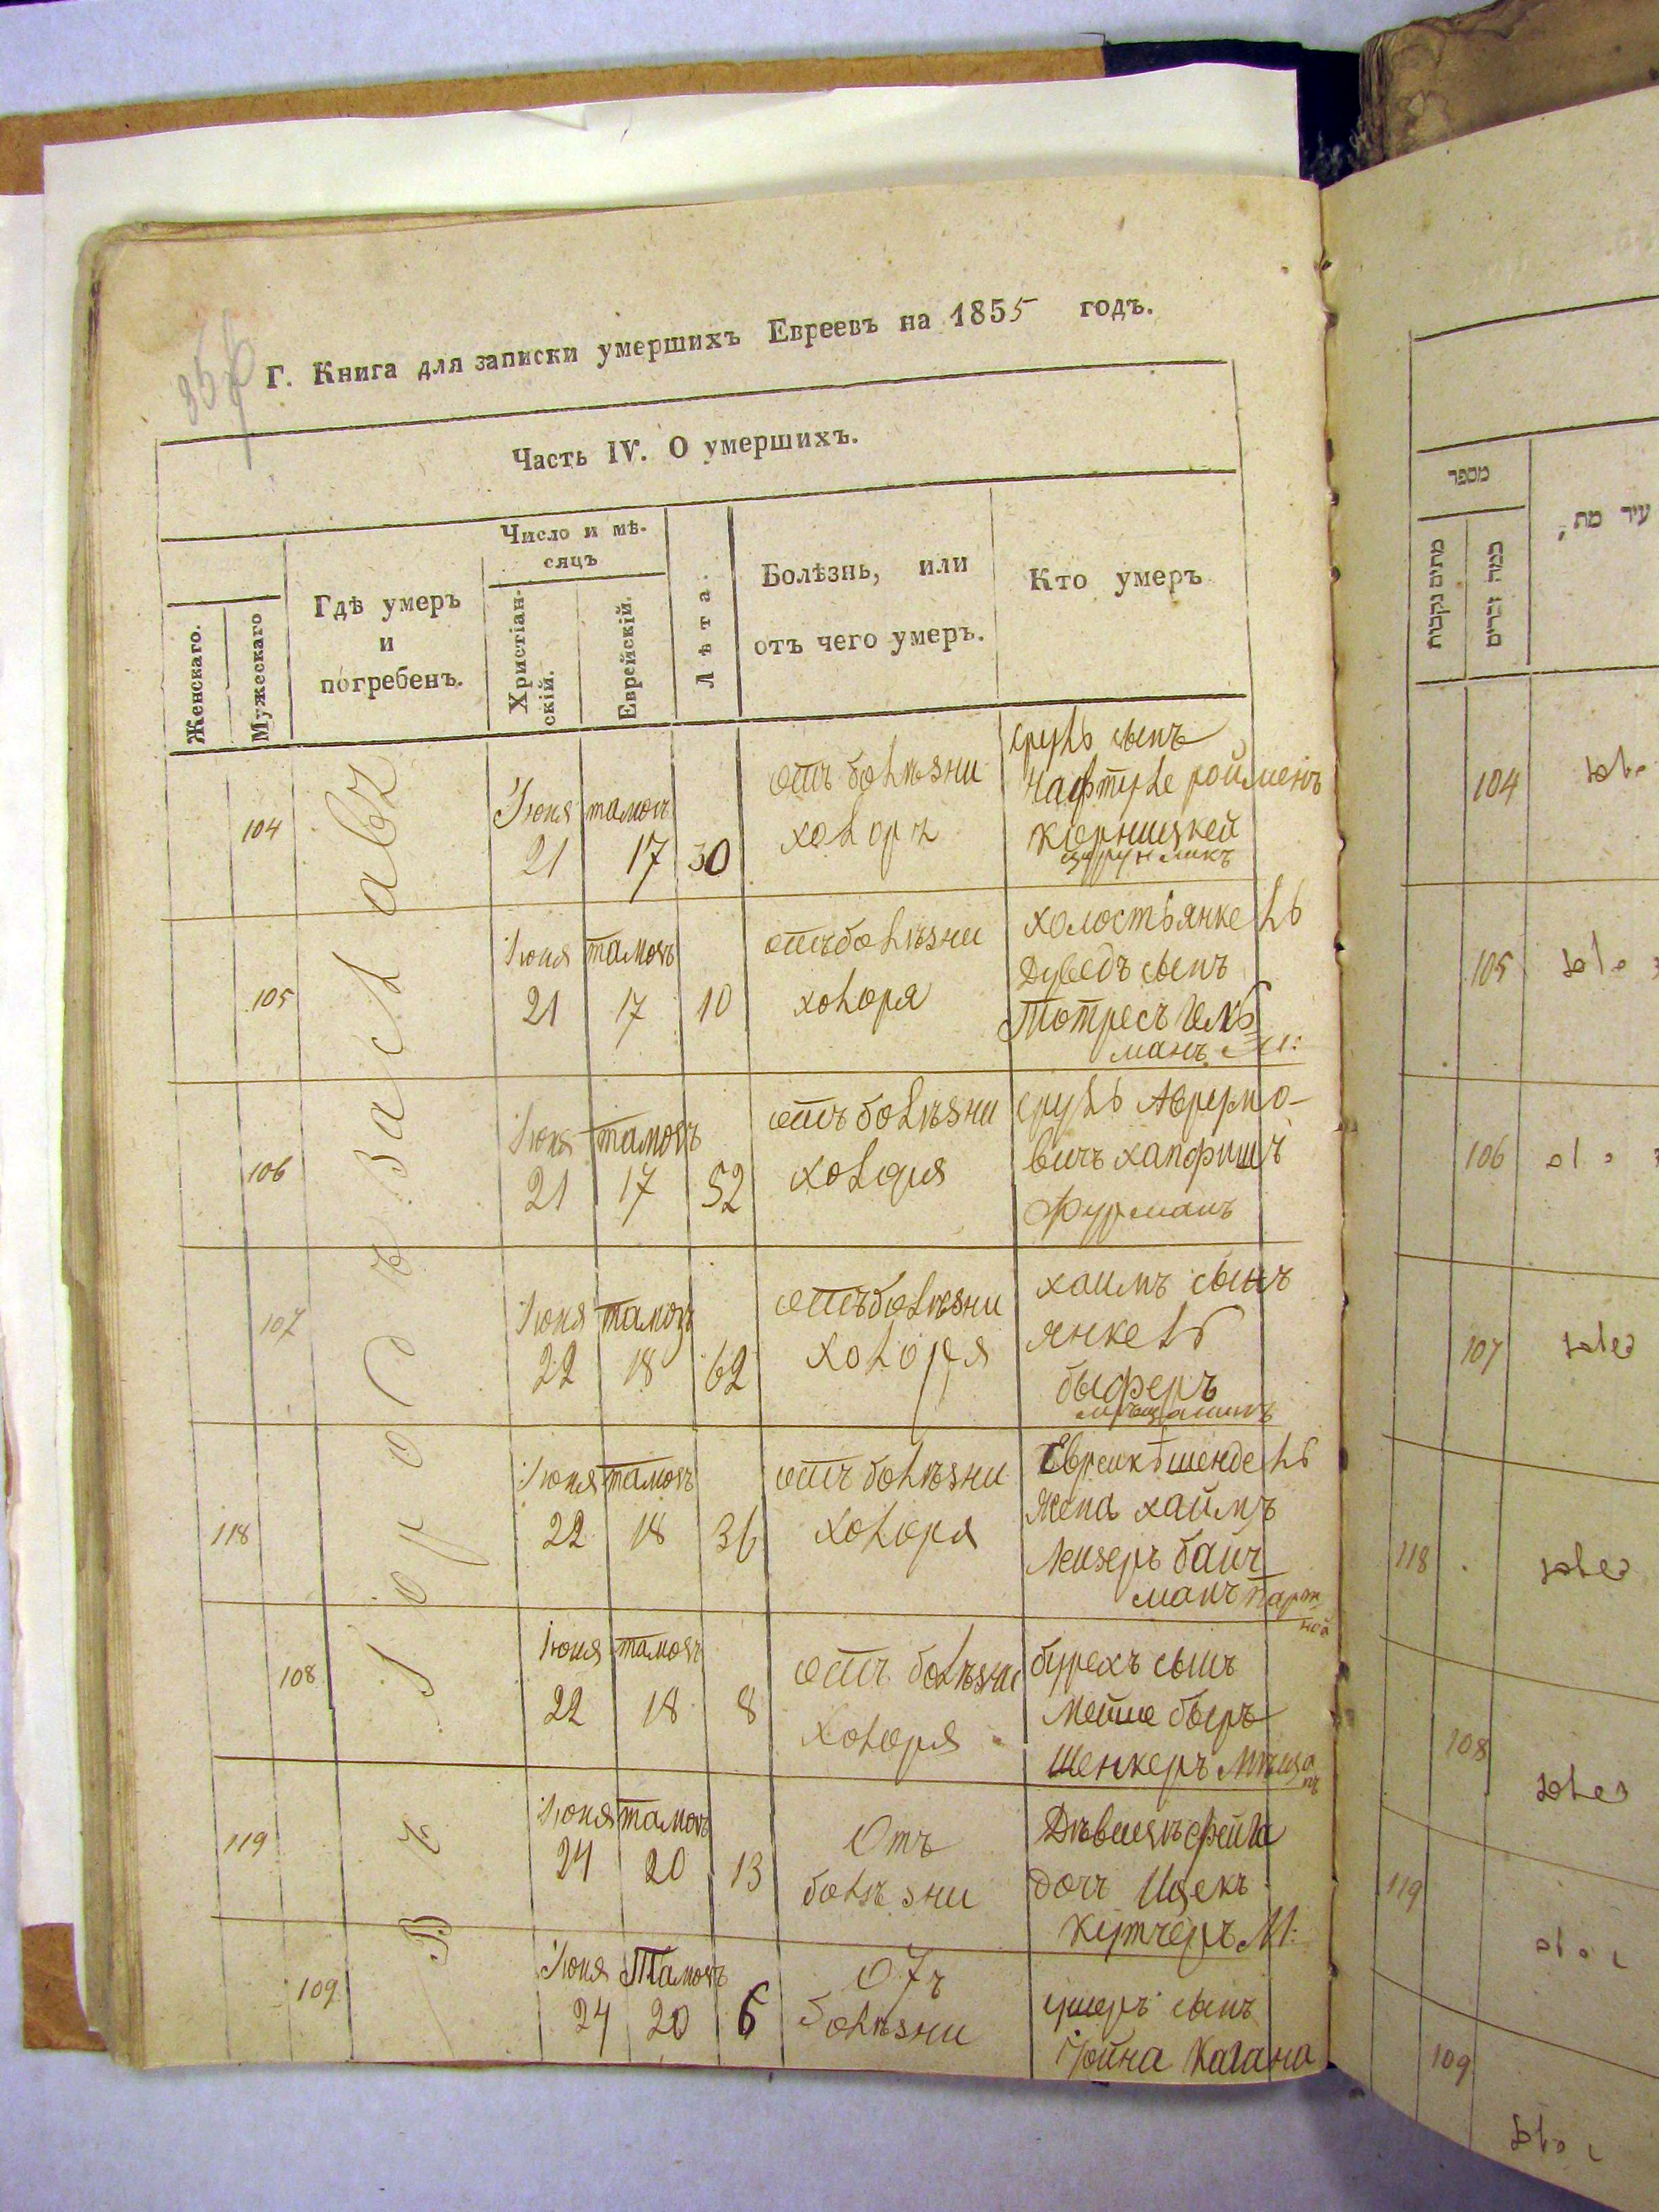 356
Г. Книга для записки умершихъ Евреевъ на 1855 годъ.
Часть IV. О умершихъ.
Женскаго.
Мужескаго
Гдѣ умеръ
и
погребенъ.
Число и мѣ-
сяцъ
Христіан-
скій.
Еврейскій.
Лѣта.
Болѣзнь, или
отъ чего умеръ.
Кто умеръ
Въ городѣ Заславѣ
104
Іюня тамозъ
21 17 30
отъ болѣзни
холоря
сруль сынъ
Нафтуле ройменъ
105
Іюня тамозъ
21 17 10
отъ болѣзни
холоря
холостъ янкель
Дуведъ сынъ
манъ М:
106
Іюня тамозъ
21 17 52
отъ болѣзни
холоря
сруль Аврумо-
вичъ
фурманъ
107
Іюня тамозъ
22 18 62
отъ болѣзни
холоря
хаимъ сынъ
янкель
быферъ
мѣщанинъ
118
Іюня тамозъ
22 18 36
отъ болѣзни
холоря
Еврейкѣ шендель
жена хаймъ
Лейзеръ байч
манъ
108
Іюня тамозъ
22 18 8
отъ болѣзни
холоря
бурехъ сынъ
Мейше беръ
Шенкеръ Мѣща
нъ
119
Іюня тамозъ
24 20 13
Отъ
болѣзни
Дѣвицѣ фейга
дочъ Ицекъ
Кутчеръ М:
109
Іюня Тамозъ
24 20 6
Отъ
болѣзни
ушеръ сынъ
Йойна Кагана
מספר
מתים נקבות
כמה זכרים
עיר מת,
104
105
106
107
118
108
119
109